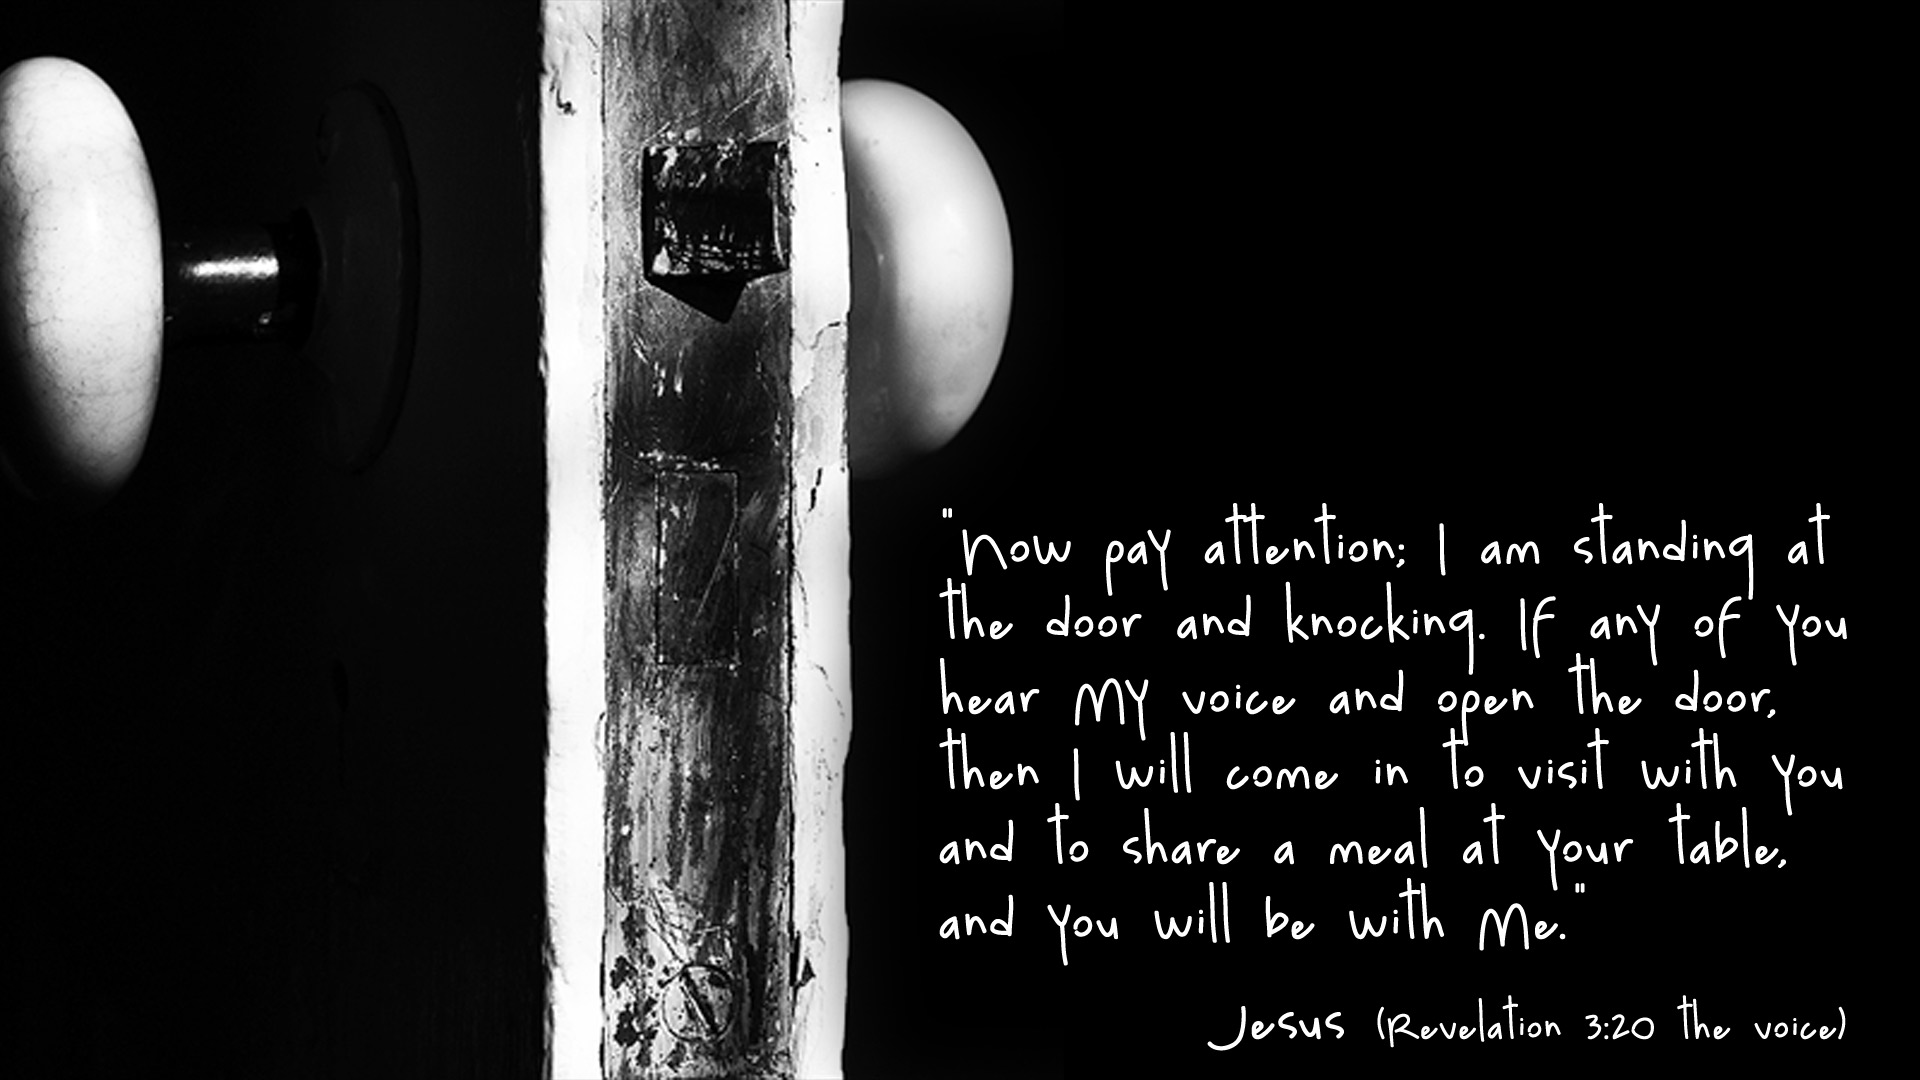 "Now pay attention; I am standing at
the door and knocking. If any of you
hear My voice and open the door,
then I will come in to visit with you
and to share a meal at your table,
and you will be with Me."
Jesus (Revelation 3:20 the voice)